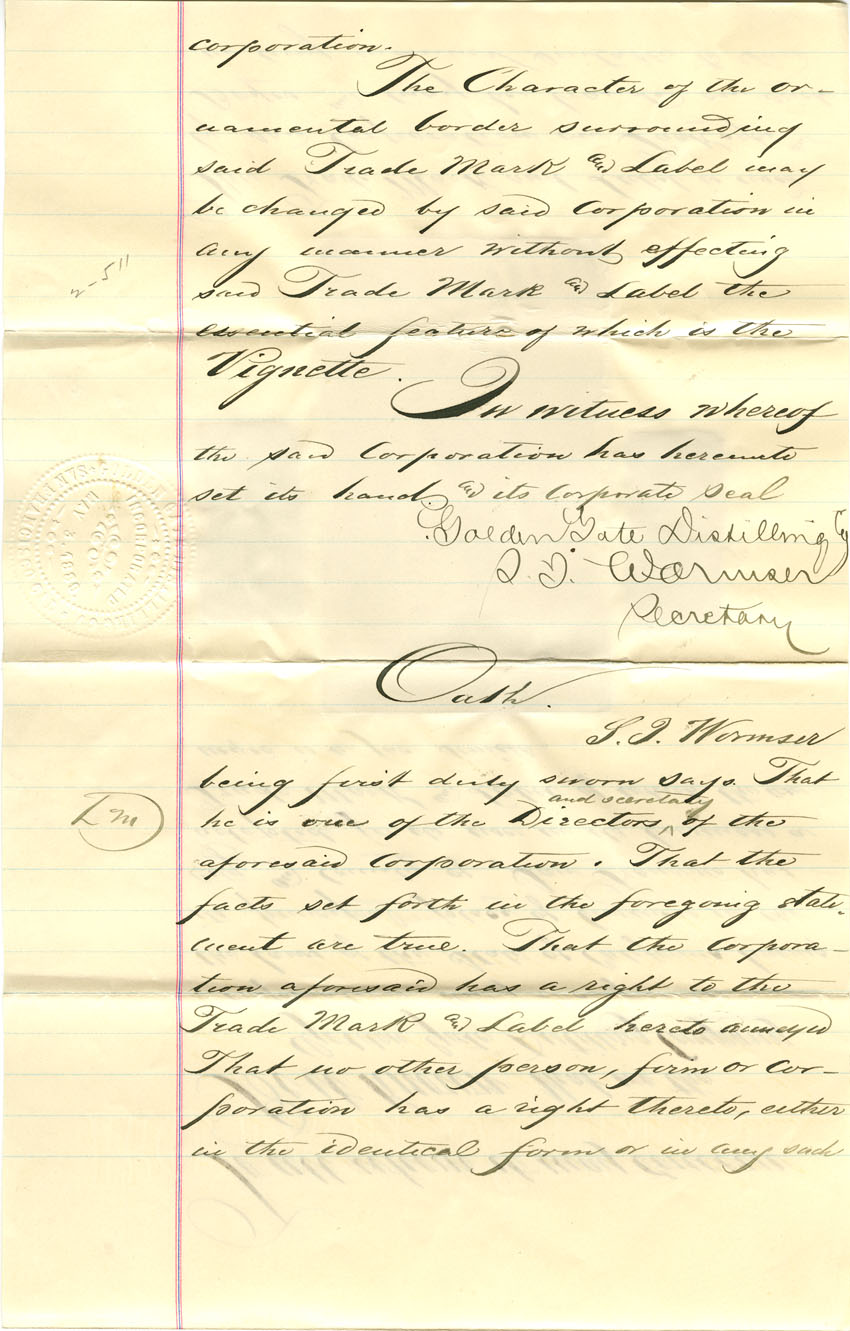 corporation.
The Character of the or-
namental border surrounding
said Trade Mark and Label may
be changed by said Corporation in
any manner without effecting
said Trade Mark and Label the
essential feature of which is the
Vignette.
In witness whereof
the said Corporation has hereunto
set its hand and its Corporate Seal
Golden Gate Distilling Cy
S. I. Wormser
Secretary
2-511
Oath.
S. I. Wormser
being first duly sworn says. That
and secretary
he is one of the Directors ^ of the
aforesaid Corporation. That the
facts set forth in the foregoing state-
ment are true. That the Corpora-
tion aforesaid has a right to the
Trade Mark and Label hereto annexed
That no other person, firm or Cor-
poration has a right thereto, either
in the identical form or in any such